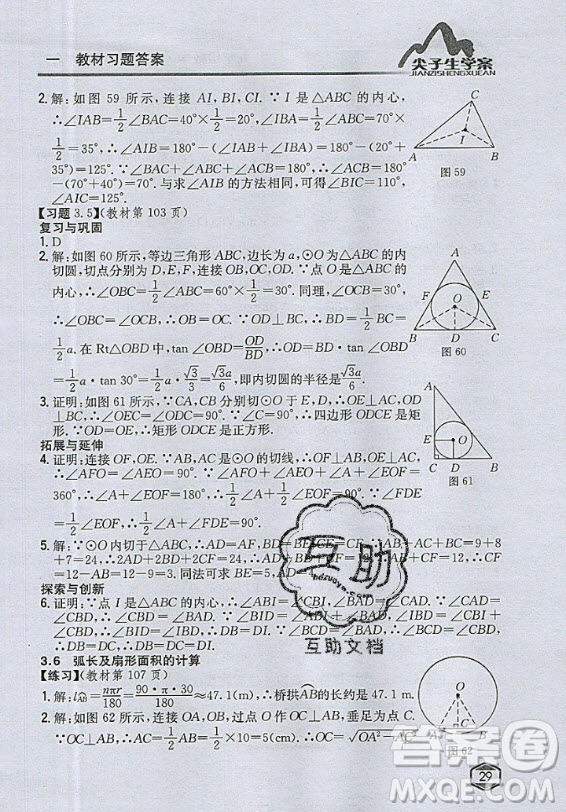 一 教材习题答案
尖子生学案
JIANZISHENGXUEAN
2.解:如图 59 所示,连接 AI,BI,CI.∵I 是△ABC 的内心,
∴∠IAB=1/2∠BAC=40°×1/2=20°,∠IBA=1/2∠ABC=70°×
1/2=35°.∴∠AIB=180°-(∠IAB+∠IBA)=180°-(20°+
35°)=125°.∵∠BAC+∠ABC+∠ACB=180°,∴∠ACB=180°-
70°-40°=70°.与求∠AIB 的方法相同,可得∠BIC=110°,
∠AIC=125°.
图 59
【习题 3.5】(教材第 103 页)
复习与巩固
1.D
2.解:如图 60 所示,等边三角形 ABC,边长为 a,⊙O 为它的内
切圆,切点分别为 D,E,F,连接 OB,OC,OD.∵点 O 是△ABC 的
内心,∴∠OBC=1/2∠ABC=1/2×60°=30°.同理,∠OCB=30°.
∴∠OBC=∠OCB.∴OB=OC.∵OD⊥BC,∴BD=1/2BC=
1/2a.在 Rt△OBD 中,tan∠OBD=OD/BD,∴OD=BD·tan∠OBD
=1/2a·tan 30°=1/2a·√3/3=√3a/6,即内切圆的半径是√3a/6.
图 60
3.证明:如图 61 所示,∵CA,CB 分别切⊙O 于 E,D,∴∠OEC
=∠ODC=90°.∵∠C=90°,∴四边形 ODCE 是矩形.
∵OE=OD,∴矩形 ODCE 是正方形.
图 61
拓展与延伸
4.证明:连接 OF,OE.∵AB,AC 是⊙O 的切线,∴OF⊥AB,OE⊥AC.
∴∠AFO=∠AEO=90°.∵∠A+∠AFO+∠AEO+∠EOF=
360°,∴∠A+∠EOF=180°.∵∠EDF=1/2∠EOF,∴∠FDE
=1/2∠EOF=1/2(180°-∠A)=90°-1/2∠A.
5.解:∵⊙O 内切于△ABC,∴AD=AF,BD=BE,CE=CF.∵9+8
+7=24,∴2AD+2BD+2CF=24.∴AD+BD+CF=12.∵BD+
CF=8,∴AD=12-8=4.同法可求 BE=5,
探索与创新
6.证明:∵点 I 是△ABC 的内心,∴∠ABI=∠CBI,∠BAD=
∠CAD.
∠CBD,∴∠DBI=∠BID.∴DB=DI.
3.6 弧长及扇形面积的计算
【练习】(教材第 107 页)
1.解:l=nπr/180=90·π·30/180≈47.1(m).∴桥拱AB的长约是 47.1 m.
2.解:如图 62 所示,连接 OA,OB,过点 O 作 OC⊥AB,垂足为点 C.
∵OC⊥AB,∴AC=1/2AB=1/2×10=5(cm).∴OC=
图 62
互助
互助文档
答案圈
MXQE.COM
29